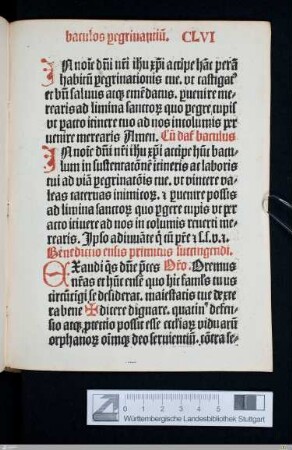 baculos peregrinantiū. CLVI
IN noīe dn̄i nr̄i ihu xp̄i accipe hāc perā
habitū peregrinationis tue. vt castigat⁹
et bn̄ saluus atq; emēdatus. puenire me-
rearis ad limina sanctorꝝ quo pergere cupis
vt pacto itinere tuo ad nos incolumis re
uenire merearis Amen. Cū daſ baculus
IN noīe dn̄i nr̄i ihu xp̄i accipe hūc bacu
lum in sustentatōnē itineris ac laboris
tui ad viā peregrinatōis tue. vt vincere va
leas cateruas inimicorꝝ. ⁊ puenire possis
ad limina sanctorꝝ quo pergere cupis vt per
acto itinere ad nos in columis reuerti me-
rearis. Ipso adiuuāte q̄ cū pr̄e ⁊ s.s. v.
Benedictio ensis primitus succingendi.
EXaudi qs dn̄e preces Oro. Oremus
nr̄as et hūc ensē quo hic famls̄ tuus
circūcigi se desiderat. maiestatis tue dexte
ra bene ✠ dicere dignare. quatin⁹ defen-
sio atq; ptectio possit esse ecclīaꝝ viduarū
orphanorꝝ oīmq; deo seruientiū. cōtra se-
0 1 2 3 4 5
Württembergische Landesbibliothek Stuttgart